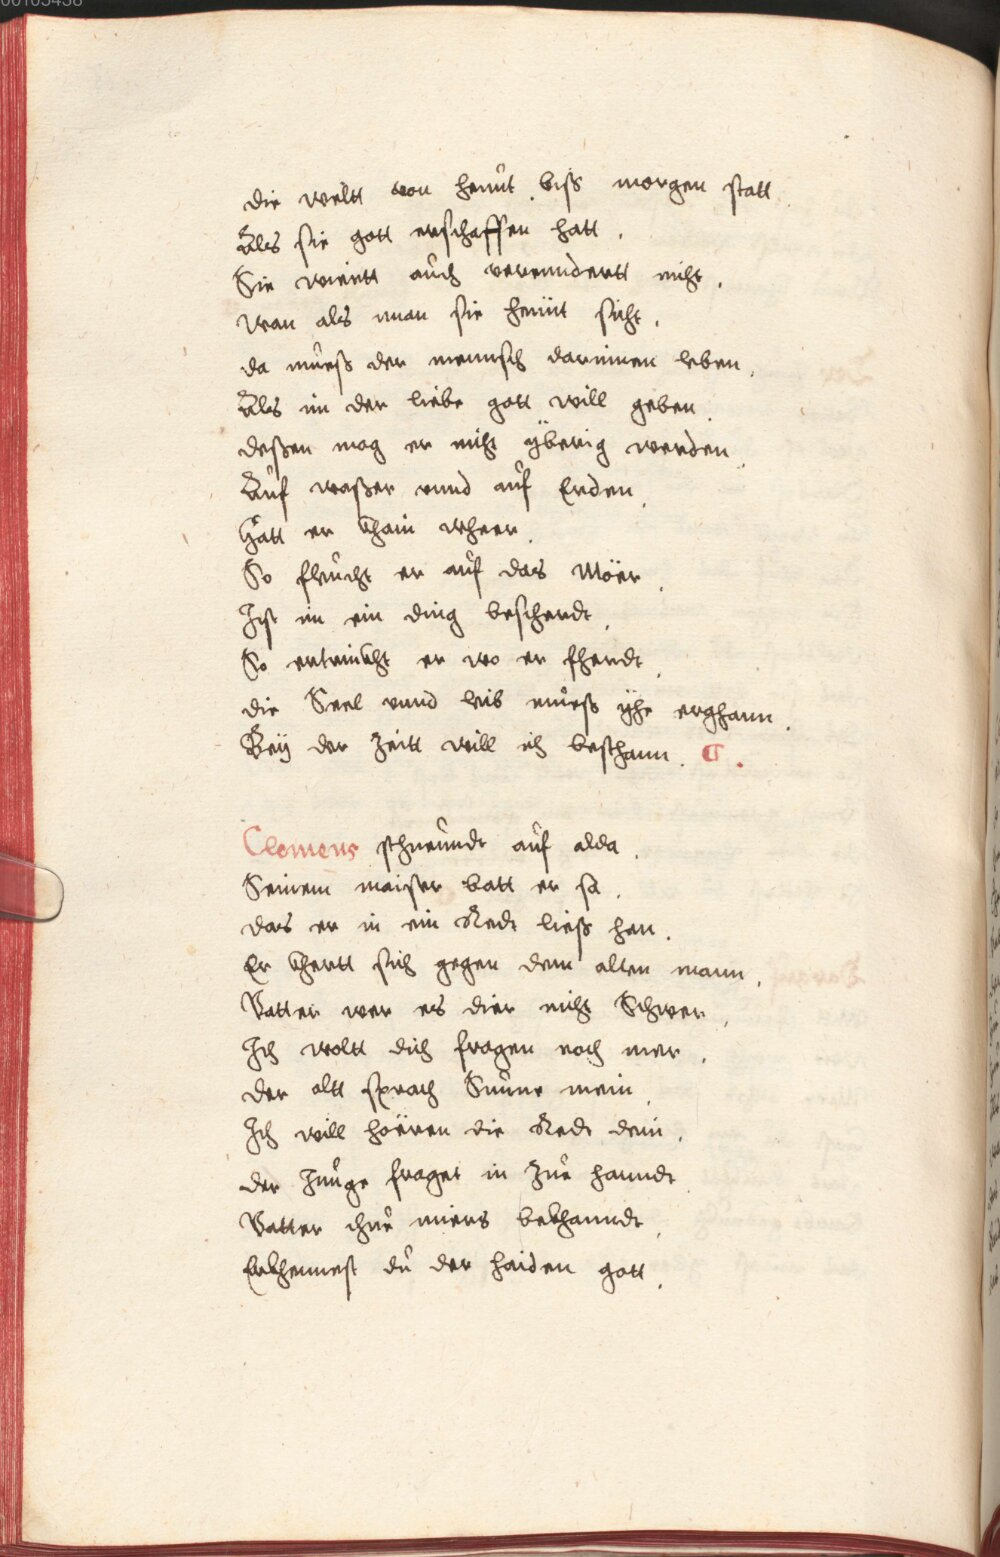 die weltt von heuut biss morgen statt
Als sie gott erschaffen hatt .
Sie wirtt auch verenndertt nicht .
Wan als man sie heüüt sicht .
da muess der mennsch darinnen leben .
Als im der liebe gott will geben .
deßen mag er nicht yberig werden .
Auf waßer vnnd auf Erden .
Hatt er khain wheer .
So fleucht er auf das Möer .
Ist im ein ding bescherdt .
So ertrinkht er wo er fherdt .
die Seel vnnd leib muess yhe erghann .
Bey der Zeitt will ich besthann .
Clemens schreundt auf alda .
Seinem maister batt er sa .
das er in ein Redt ließ han .
Er khertt sich gegen dem alten mann .
Vatter wer es dier nicht Schwer .
Ich woltt dich fragen noch mer .
der altt sprach Suune mein .
Ich will hoeren die Redt dein .
der Junge fraget in Zue hanndt
Vatter thue miers bekhanndt .
Erkhennest du der haiden gott .